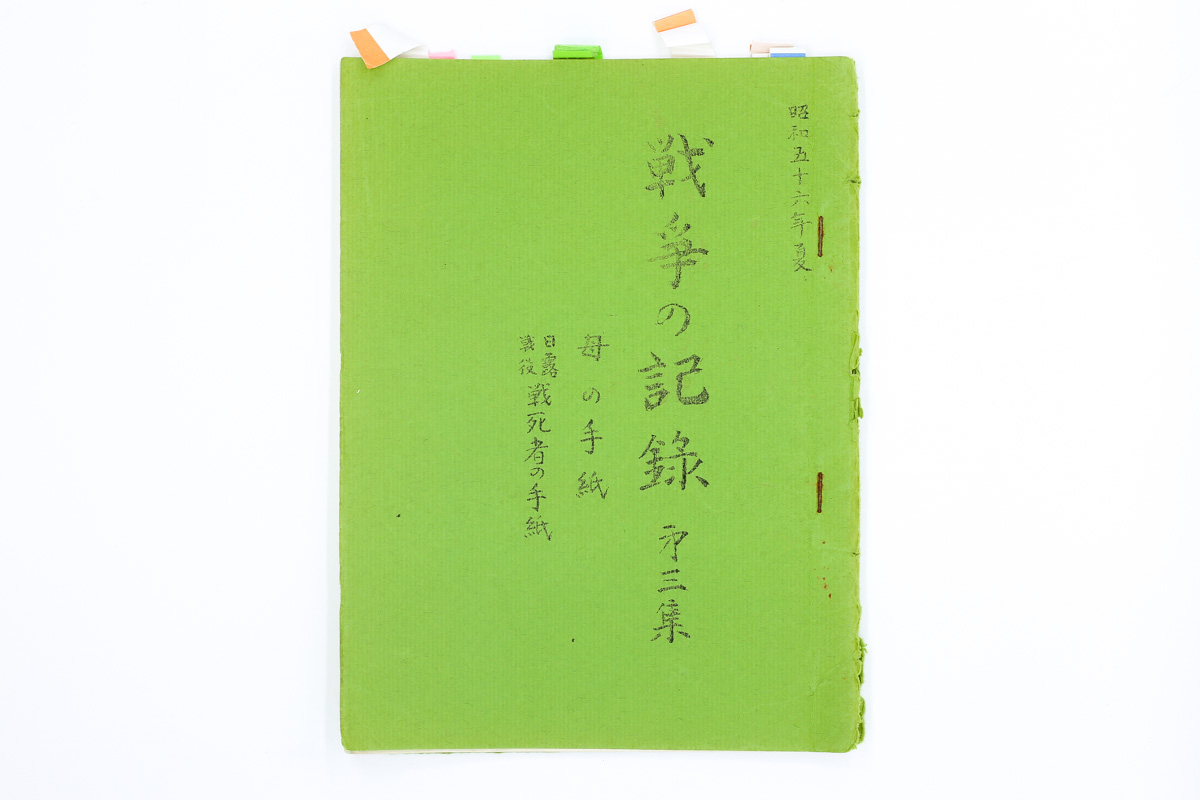 昭和五十六年夏
戦争の記録 第三集
母の手紙
日露戦役 戦死者の手紙